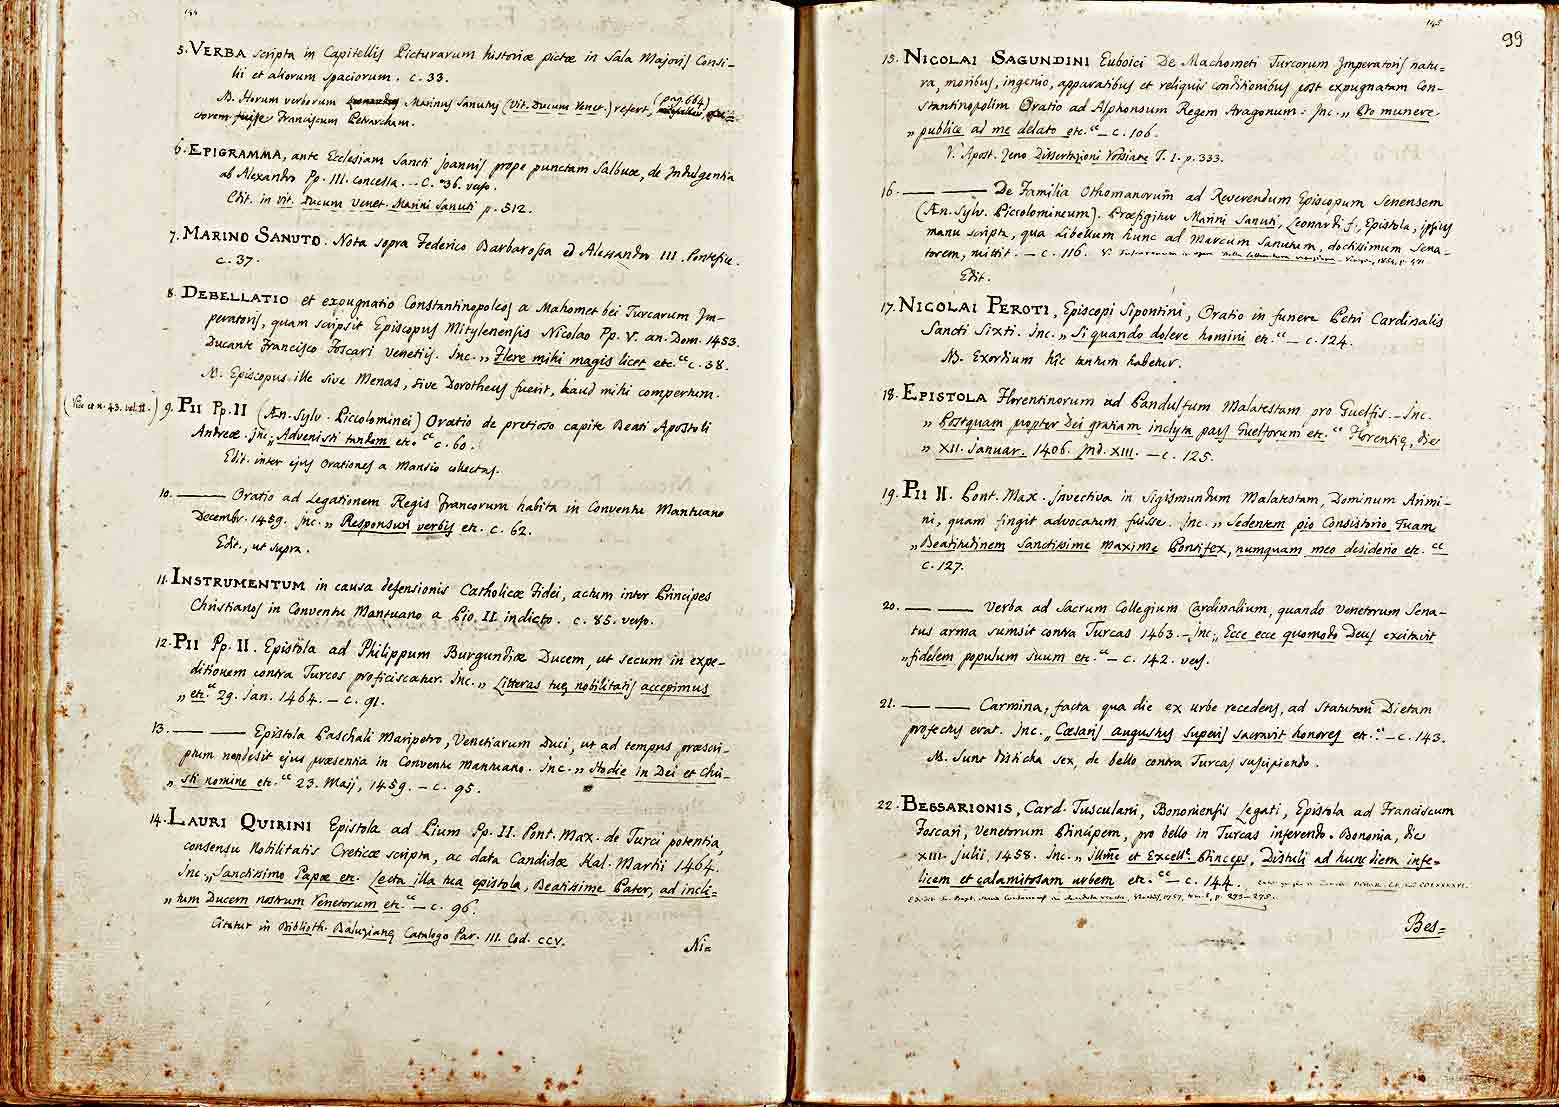 144
5. VERBA scripta in Capitellis Picturarum historiæ pictæ in Sala Majoris Consi-
lii et aliorum spaciorum. c. 33.
N. Horum verborum Marinus Sanutus (Vit. Ducum Venet.) refert, (pag. 664)
ctorem fuisse Franciscum Petrarcham.
6. EPIGRAMMA, ante Ecclesiam Sancti Joannis prope punctam Salbuæ, de Indulgentia
ab Alexandro Pp. III. concessa. - C. 36. verso.
Edit. in vit. Ducum Venet. Marini Sanuti p. 512.
7. MARINO SANUTO. Nota sopra Federico Barbarossa ed Alessandro III. Pontefice.
c. 37.
8. DEBELLATIO et expugnatio Constantinopoleos a Mahomet bei Turcarum Im-
peratoris, quam scripsit Episcopus Mitylenensis Nicolao Pp. V. an. Dom. 1453.
Ducante Francisco Foscari Venetiis. Inc. „ Flere mihi magis licet etc.“ c. 38.
N. Episcopus ille sive Menas, sive Dorotheus fuerit, haud mihi compertum.
(Vide et n. 43. vol. II.) 9. PII Pp. II (Æn. Sylv. Piccolominei) Oratio de pretioso capite Beati Apostoli
Andreæ. Inc. „ Advenisti tandem etc.“ c. 60.
Edit. inter ejus Orationes a Mansio collectas.
10. ——— Oratio ad Legationem Regis Francorum habita in Conventu Mantuano
Decembr. 1459. Inc. „ Responsuri verbis etc. c. 62.
Edit., ut supra.
11. INSTRUMENTUM in causa defensionis Catholicæ Fidei, actum inter Principes
Christianos in Conventu Mantuano a Pio. II indicto. c. 85. verso.
12. PII Pp. II. Epistola ad Philippum Burgundiæ Ducem, ut secum in expe-
ditionem contra Turcos proficiscatur. Inc. „ Litteras tuę nobilitatis accepimus
„ etc.“ 29. Jan. 1464. - c. 91.
13. —— —— Epistola Paschali Maripetro, Venetiarum Duci, ut ad tempus præscri-
ptum non desit ejus præsentia in Conventu Mantuano. Inc. „ Hodie in Dei et Chri-
„ sti nomine etc.“ 23. Maij, 1459. - c. 95.
14. LAURI QUIRINI Epistola ad Pium Pp. II. Pont. Max. de Turci potentia,
consensu Nobilitatis Creticæ scripta, ac data Candidæ Kal. Martii 1464.
Inc. „ Sanctissimo Papæ etc. Lecta illa tua epistola, Beatissime Pater, ad incli=
„ tum Ducem nostrum Venetorum etc.“ - c. 96.
Citatur in Biblioth. Baluzianę Catalogo Par. III. Cod. CCV.
Ni=
145
99
15. NICOLAI SAGUNDINI Euboici De Machometi Turcorum Imperatoris natu=
ra, moribus, ingenio, apparatibus et reliquis conditionibus post expugnatam Con-
stantinopolim Oratio ad Alphonsum Regem Aragonum: Inc. „ Pro munere
„ publice ad me delato etc.“ - c. 106.
V. Apost. Zeno Dissertazioni Vossiane T. 1. p. 333.
16. —— —— De Familia Othomanorum ad Reverendum Episcopum Senensem
(Æn. Sylv. Piccolomineum). Præfigitur Marini Sanuti, Leonardi f., Epistola, ipsius
manu scripta, qua Libellum hunc ad Marcum Sanutum, doctissimum Sena-
torem, mittit. - c. 116.
Edit.
17. NICOLAI PEROTI, Episcopi Sipontini, Oratio in funere Petri Cardinalis
Sancti Sixti. Inc. „ Si quando dolere homini etc.“ - c. 124.
N. Exordium hîc tantum habetur.
18. EPISTOLA Florentinorum ad Pandulfum Malatestam pro Guelfis. - Inc.
„ Postquam propter Dei gratiam inclyta pars Guelforum etc.“ Florentię, die
„ XII. Januar. 1406. Ind. XIII. - c. 125.
19. PII II. Pont. Max. Invectiva in Sigismundum Malatestam, Dominum Arimi-
ni, quam fingit advocatum fuisse. Inc. „ Sedentem pio Consistorio Tuam
„ Beatitudinem Sanctissime Maxime Pontifex, numquam meo desiderio etc.“
c. 127.
20. —— —— Verba ad Sacrum Collegium Cardinalium, quando Venetorum Sena-
tus arma sumsit contra Turcas 1463. - Inc. „ Ecce ecce quomodo Deus excitavit
„ fidelem populum suum etc.“ - c. 142. vers.
21. —— —— Carmina, facta qua die ex urbe recedens, ad statutam Dietam
profectus erat. Inc. „ Cæsaris augustus superis sacravit honores etc.“ - c. 143.
N. Sunt disticha sex, de bello contra Turcas suscipiendo.
22. BESSARIONIS, Card. Tusculani, Bononiensis Legati, Epistola ad Franciscum
Foscari, Venetorum Principem, pro bello in Turcas inferendo. Bononia, die
XIII. Julii, 1458. Inc. „ Illme et Excell. Princeps, Distuli ad hunc diem infe=
licem et calamitosam urbem etc.“ - c. 144.
p. 273-275.
Bes=